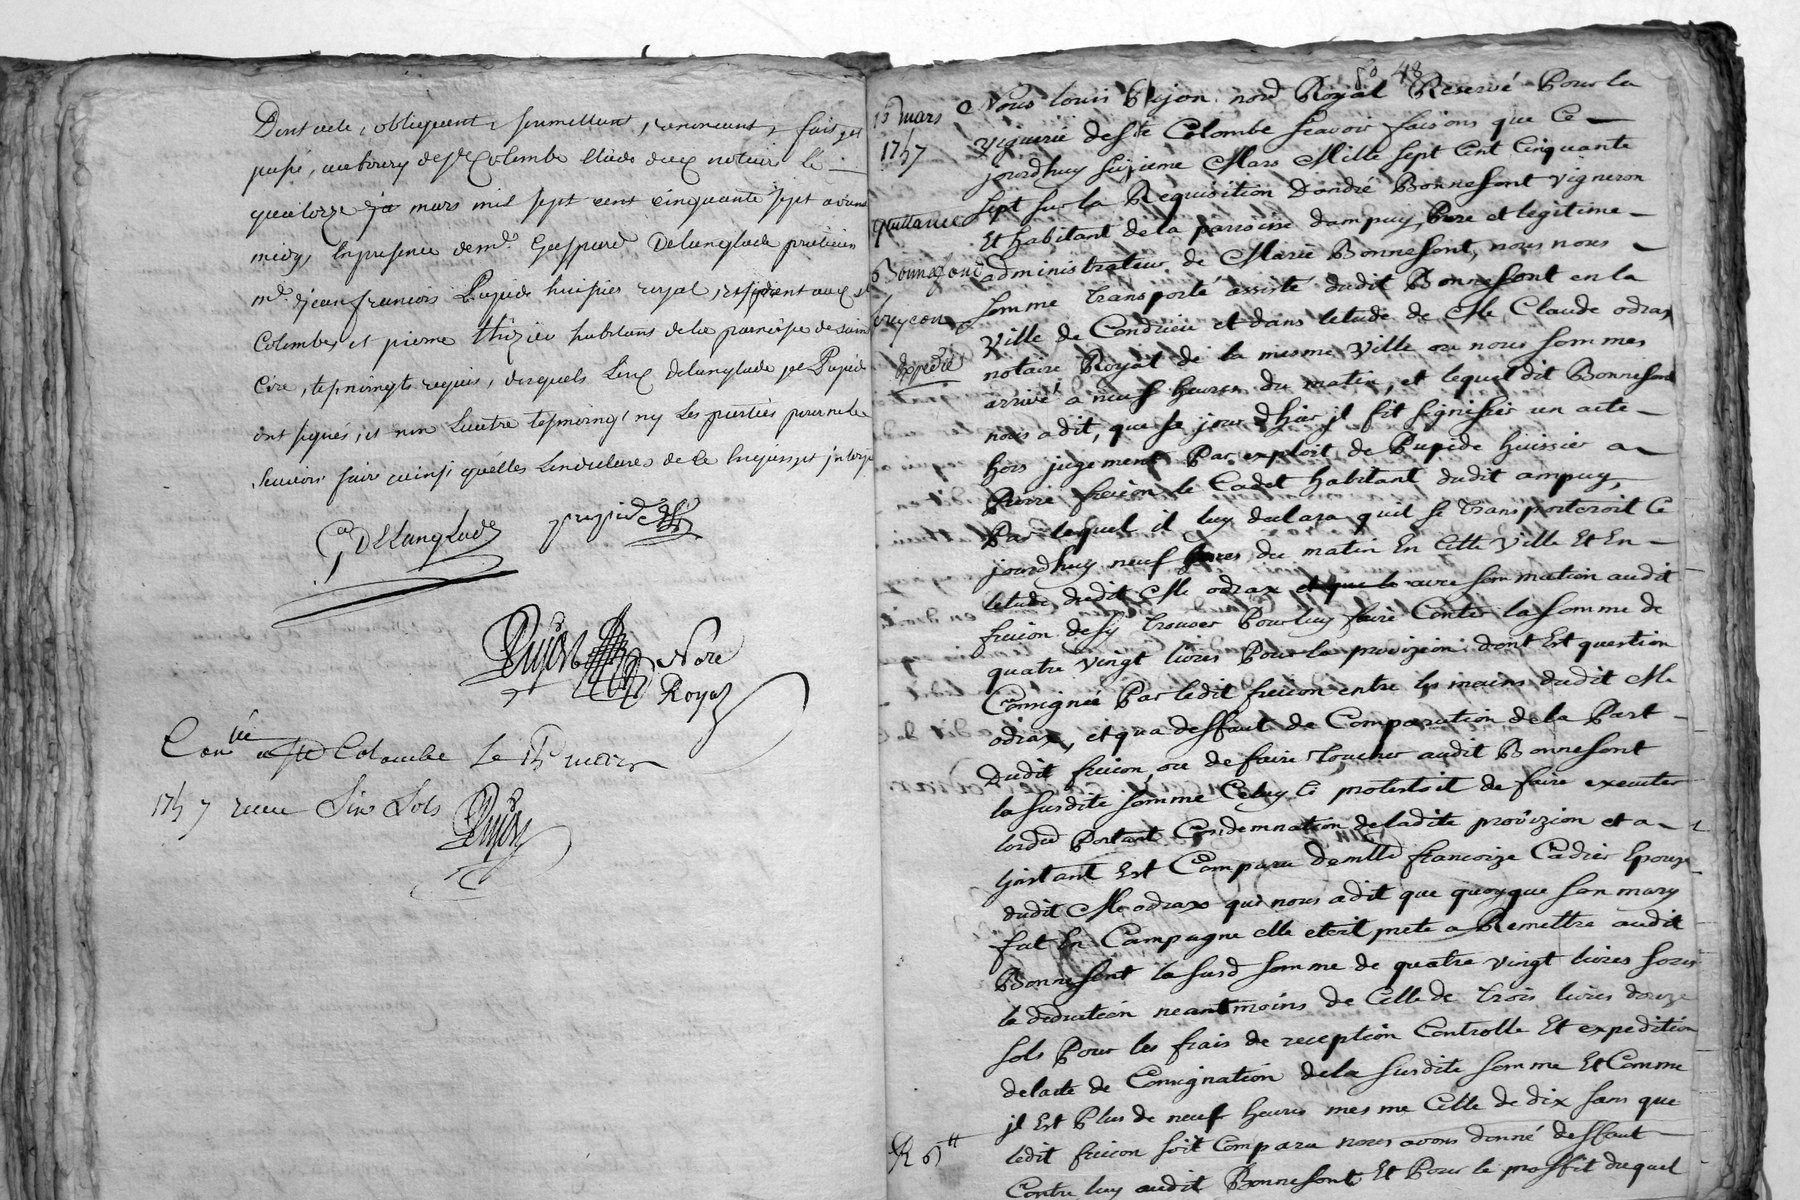 Dont acte, obligeant, soumettant, renonceant, fait, et
passé, au bourg de Ste Colombe Etude dux notaire le
quatorze mars mil sept cent cinquante sept avant
midy, En presence de mr. Gaspard Delanglade praticien
mr. jean francois Pupide huissier royal, aud st
Colombe, et pierre thizier habitans de la paroisse de saint
Cire, tesmoingts requis, desquels Lesd Delanglade et Pupide
ont signés, et non Lautre tesmoing, ny Les parties pour ne le
scavoir fair ainsi quelles Lendeclarer de ce Enquis et interp
G DeLanglade pupide
Pujon Nore
Royal
Con lé a Ste Colombe Le 15 mars
1757 receu Six Sols
Pujon
fo 48
15 mars
1757
Quittance
Bonnefond
freycon
Expedié
R 6 tt
Nous louis Pujon nore Royal Reservé Pour la
viguerie de Ste Colombe scavoir faisons que Ce
jourdhuy seizieme Mars Mille sept Cent Cinquante
sept sur la Requisition Dandré Bonnefont vigneron
Et habitant de la parroisse dampuy, Pere et legitime
administrateur de Marie Bonnefont, nous nous
somme transporté assisté dudit Bonnefont en la
ville de Condrieu et dans letude de Me Claude odrax
notaire Royal de la mesme ville ou nous sommes
arrivé a neuf heures du matin, et lequel dit Bonnefond
nous a dit, que le jour dhier il fit signiffier un acte
hors jugement Par exploit de Pupide huissier a
Pierre freicon le Cadet habitant dudit ampuy,
Par lequel il luy declara quil se transporteroit Ce
jourdhuy neuf heures du matin En Cette ville Et En
letude dudit Me odrax avec sommation audit
freicon de sy trouver Pour luy faire Conter la somme de
quatre vingt livres Pour la provizion dont Est question
Consignée Par ledit freicon entre les mains dudit Me
odrax, et qua deffaut de Comparution de la Part
Dudit freicon, ou de faire toucher audit Bonnefont
la susdite somme Celuy Cy protestoit de faire executer
lordce Portant Condemnation de ladite provizion et a
linstant Est Comparu demlle francoize Cadier Epouze
dudit Me odrax qui nous a dit que quoyque son mary
fut En Campagne elle etoit prete a Remettre audit
Bonnefont la susd somme de quatre vingt livres sous
la deduction neantmoins de Celle de trois livres douze
sols Pour les frais de reception Controlle Et expedition
de lacte de Consignation de la susdite somme Et Comme
il Est Plus de neuf heures mesme Celle de dix sans que
ledit freicon soit Comparu nous avons donné deffaut
Contre luy audit Bonnefont Et Pour le proffit duquel